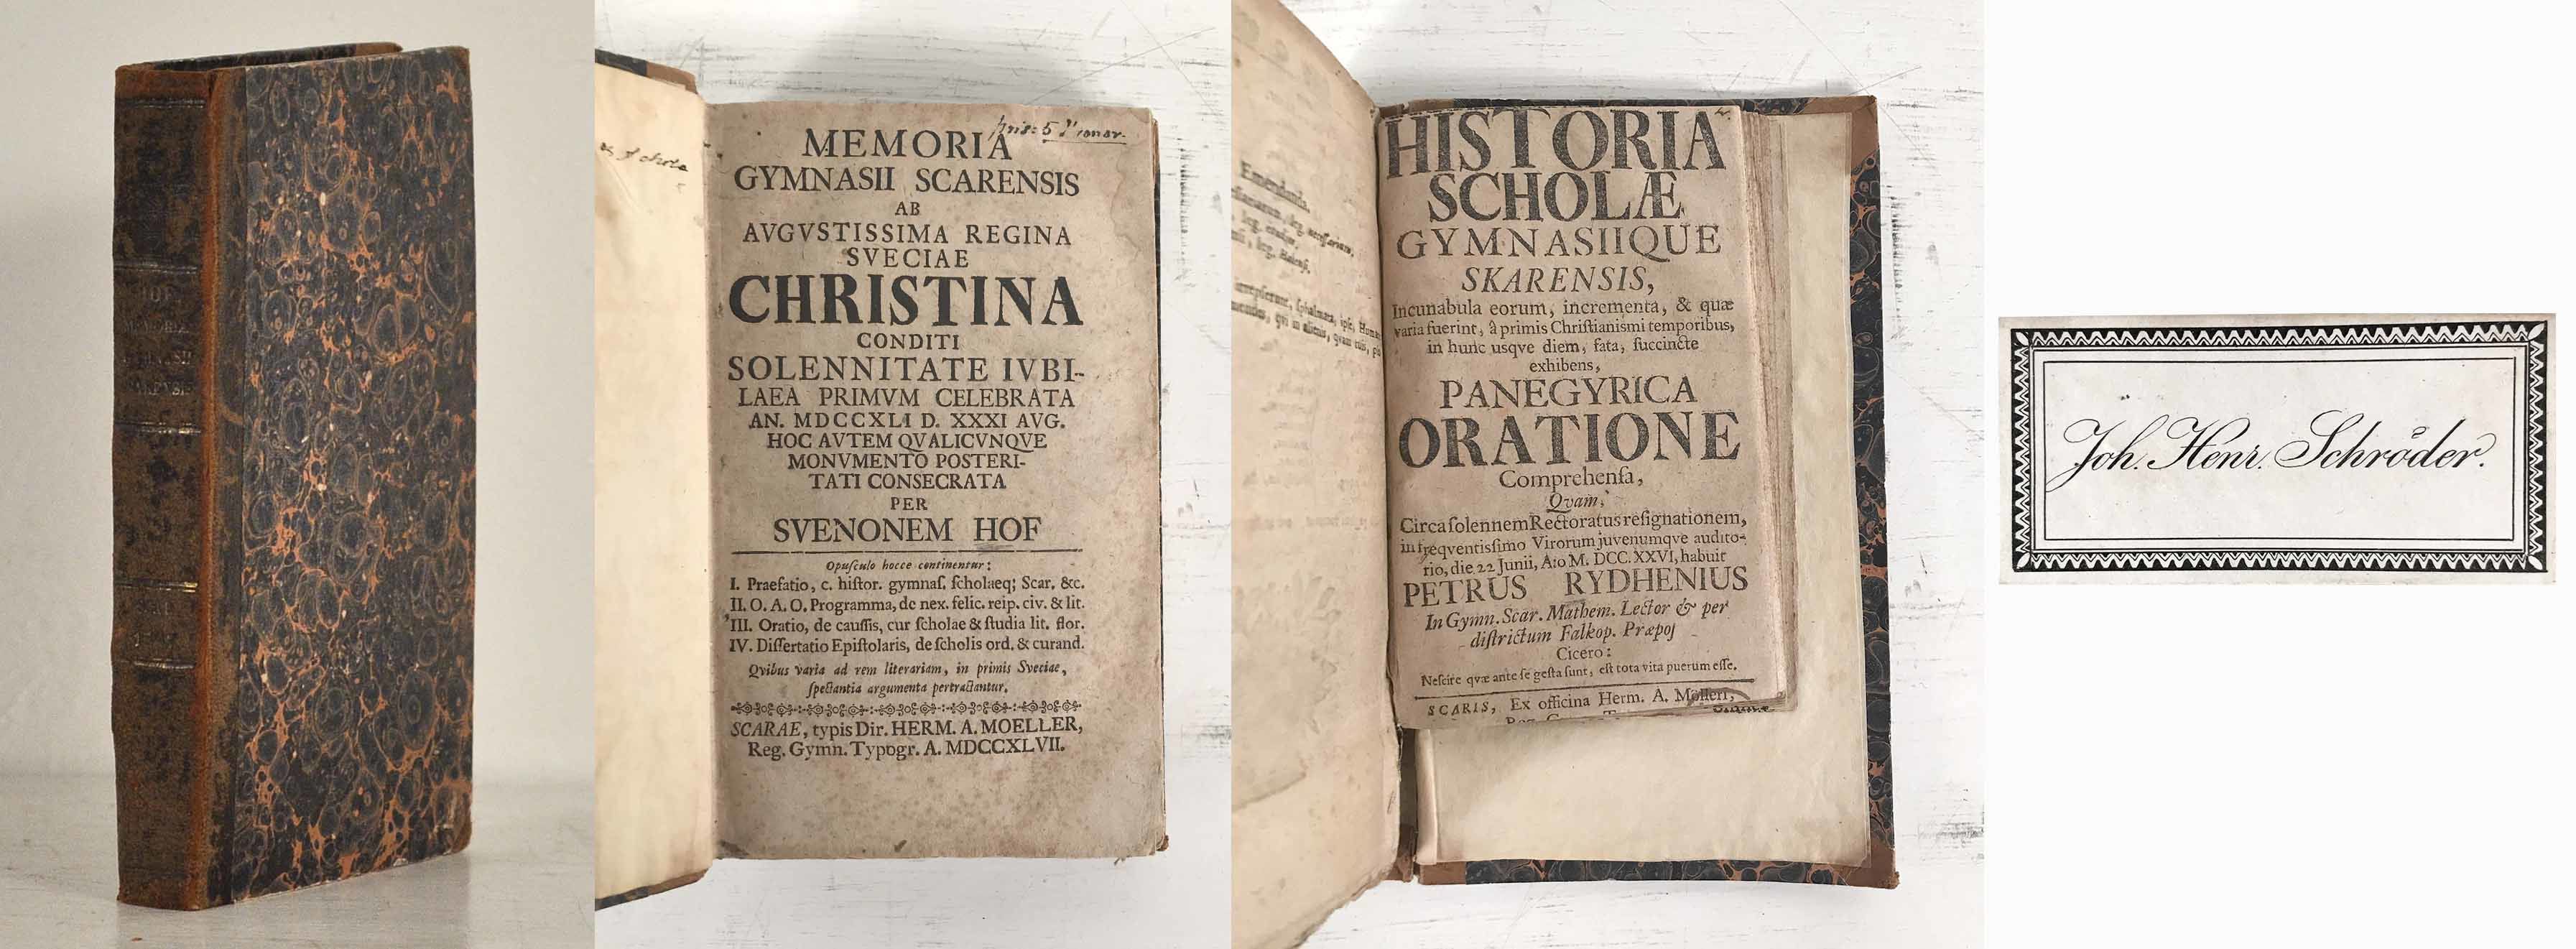 HOF
MEMORIA
GYMNASII
SCARENSIS
MEMORIA
GYMNASII SCARENSIS
AB
AVGVSTISSIMA REGINA
SVECIAE
CHRISTINA
CONDITI
SOLENNITATE IVBI-
LAEA PRIMVM CELEBRATA
AN. MDCCXLI D. XXXI AVG.
HOC AVTEM QVALICVNQVE
MONVMENTO POSTERI-
TATI CONSECRATA
PER
SVENONEM HOF
Opuſculo hocce continentur:
I. Praefatio, c. hiſtor. gymnaſ. ſcholaeq; Scar. &c.
II. O. A. O. Programma, de nex. felic. reip. civ. & lit.
III. Oratio, de cauſſis, cur ſcholae & ſtudia lit. flor.
IV. Diſſertatio Epiſtolaris, de ſcholis ord. & curand.
Qvibus varia ad rem literariam, in primis Sveciae,
ſpectantia argumenta pertractantur.
SCARAE, typis Dir. HERM. A. MOELLER,
Reg. Gymn. Typogr. A. MDCCXLVII.
Emendanda.
HISTORIA
SCHOLÆ
GYMNASIIQUE
SKARENSIS,
Incunabula eorum, incrementa, & quæ
varia fuerint, à primis Chriſtianismi temporibus,
in hunc usqve diem, fata, ſuccincte
exhibens,
PANEGYRICA
ORATIONE
Comprehenſa,
Qvam,
Circa ſolennem Rectoratus reſignationem,
in freqventiſſimo Virorum juvenumqve audito-
rio, die 22 Junii, A:o M. DCC. XXVI, habuit
PETRUS RYDHENIUS
In Gymn. Scar. Mathem. Lector & per
diſtrictum Falkop. Præpoſ
Cicero:
Neſcire qvæ ante ſe geſta ſunt, eſt tota vita puerum eſſe.
SCARIS, Ex officina Herm. A. Mölleri,
Joh. Henr. Schröder.